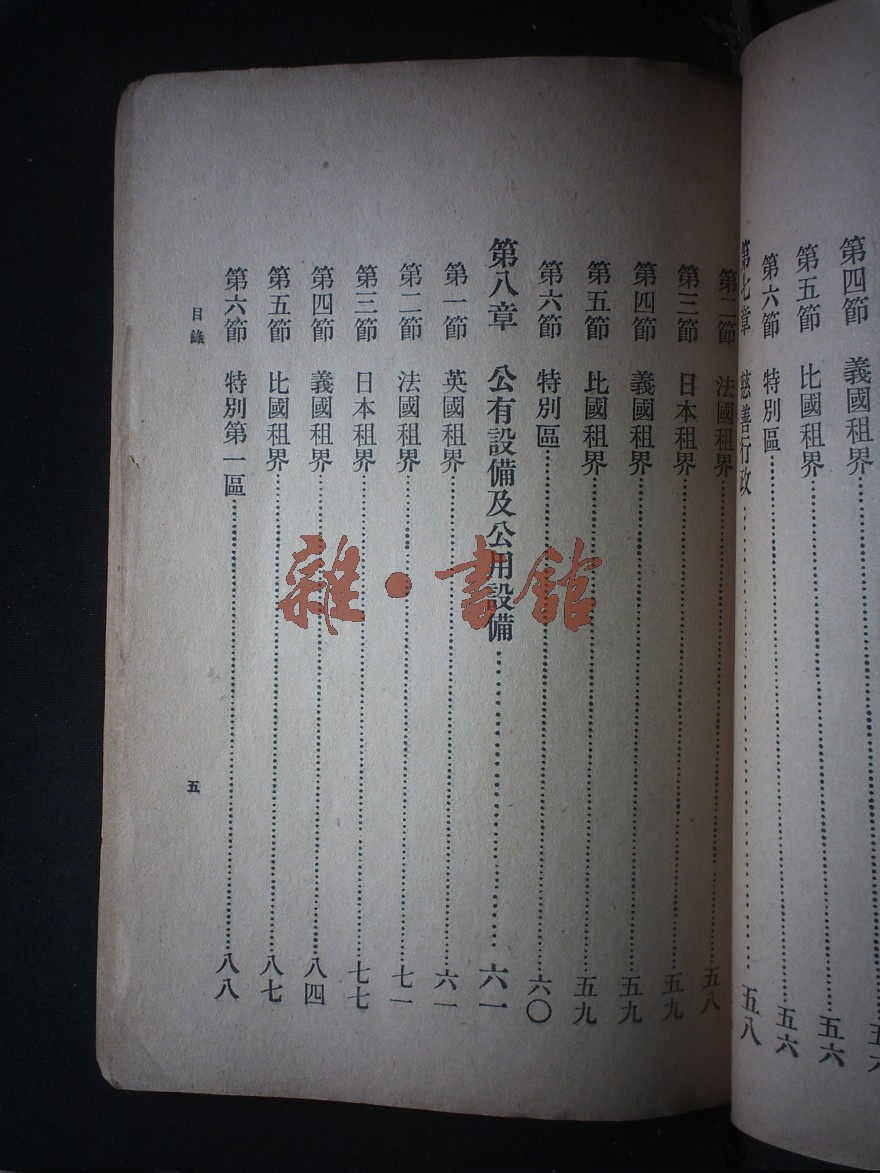 第四節　義國租界
第五節　比國租界………五六
第六節　特別區………五六
第七章　慈善行政………五八
第二節　法國租界………五八
第三節　日本租界………五九
第四節　義國租界………五九
第五節　比國租界………五九
第六節　特別區………六〇
第八章　公有設備及公用設備………六一
第一節　英國租界………六一
第二節　法國租界………七一
第三節　日本租界………七七
第四節　義國租界………八四
第五節　比國租界………八七
第六節　特別第一區………八八
目錄
五
雜·書館